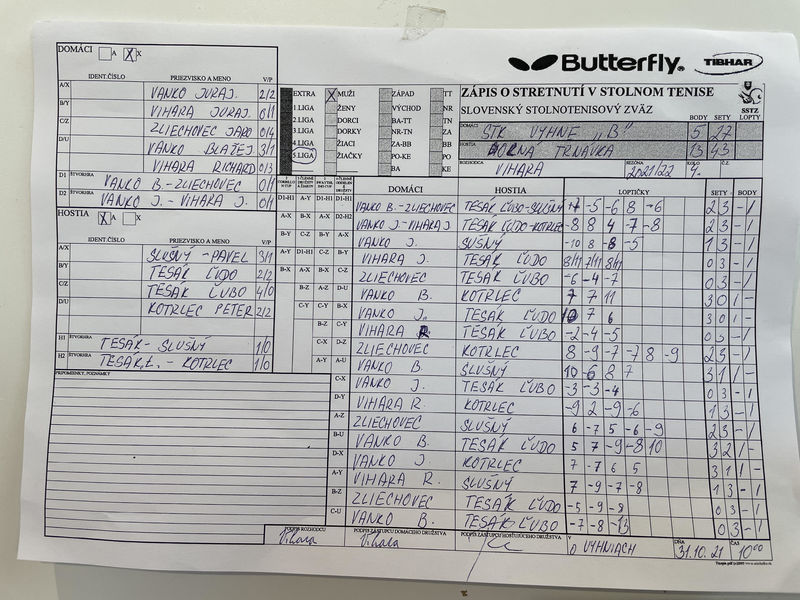 DOMÁCI A X
Butterfly TIBHAR
IDENT.ČÍSLO PRIEZVISKO A MENO V/P
A/X VANKO JURAJ 2/2
B/Y VIHARA JURAJ 0/1
C/Z ZLIECHOVEC JARO 0/4
D/U VANKO BLAŽEJ 3/1
VIHARA RICHARD 0/3
D1 ŠTVORHRA VANKO B.-ZLIECHOVEC 0/1
D2 VANKO J.-VIHARA J. 0/1
HOSTIA A X
IDENT.ČÍSLO PRIEZVISKO A MENO V/P
A/X SLUŠNÝ-PAVEL 3/1
B/Y TESÁK ĽUDO 2/2
C/Z TESÁK ĽUBO 4/0
D/U KOTRLEC PETER 2/2
H1 ŠTVORHRA TESÁK-SLUŠNÝ 1/0
H2 ŠTVORHRA TESÁK Ľ.-KOTRLEC 1/0
PRIPOMIENKY, POZNÁMKY
EXTRA MUŽI ZÁPAD TT
1.LIGA ŽENY VÝCHOD NR
2.LIGA DORCI BA-TT TN
3.LIGA DORKY NR-TN ZA
4.LIGA ŽIACI ZA-BB BB
5.LIGA ŽIAČKY PO-KE PO
BA KE
ZÁPIS O STRETNUTÍ V STOLNOM TENISE
SLOVENSKÝ STOLNOTENISOVÝ ZVÄZ
SSTZ
BODY SETY LOPTY
DOMÁCI STK VYHNE „B" 5 27
HOSTIA HORNÁ TRNÁVKA 13 43
ROZHODCA VIHARA SEZÓNA 2021/22 KOLO 4. Č.Z.
DOMÁCI HOSTIA LOPTIČKY SETY BODY
D1-H1 VANKO B.-ZLIECHOVEC TESÁK ĽUBO-SLUŠNÝ -5 -6 8 -6 2 3 - 1
D2-H2 VANKO J-VIHARA J TESÁK ĽUDO-KOTRLEC -8 8 4 -7 -8 2 3 - 1
A-X VANKO J. SLUŠNÝ -10 8 -8 -5 1 3 - 1
B-Y VIHARA J. TESÁK ĽUDO 8/11 7/11 8/11 0 3 - 1
C-Z ZLIECHOVEC TESÁK ĽUBO -6 -4 -7 0 3 - 1
D-U VANKO B. KOTRLEC 7 7 11 3 0 1 -
B-X VANKO J. TESÁK ĽUDO 10 7 6 3 0 1 -
VIHARA R TESÁK ĽUBO -2 -4 -5 0 3 - 1
ZLIECHOVEC KOTRLEC 8 -9 -7 -7 8 -9 2 3 - 1
A-U VANKO B. SLUŠNÝ 10 -6 8 7 3 1 1 -
C-X VANKO J. TESÁK ĽUBO -3 -3 -4 0 3 - 1
D-Y VIHARA R. KOTRLEC -9 2 -9 -6 1 3 - 1
A-Z ZLIECHOVEC SLUŠNÝ 6 -7 5 -6 -9 2 3 - 1
B-U VANKO B. TESÁK ĽUDO 5 7 -9 -8 10 3 2 1 -
D-X VANKO J KOTRLEC 7 -7 6 5 3 1 1 -
A-Y VIHARA R. SLUŠNÝ 7 -9 -7 -8 1 3 - 1
B-Z ZLIECHOVEC TESÁK ĽUDO -5 -9 -8 0 3 - 1
C-U VANKO B. TESÁK ĽUBO -7 -8 -13 0 3 - 1
PODPIS ROZHODCU Vihara
PODPIS ZÁSTUPCU DOMÁCEHO DRUŽSTVA Vihara
PODPIS ZÁSTUPCU HOSŤUJÚCEHO DRUŽSTVA
V VYHNIACH DŇA 31.10.21 ČAS 10:00